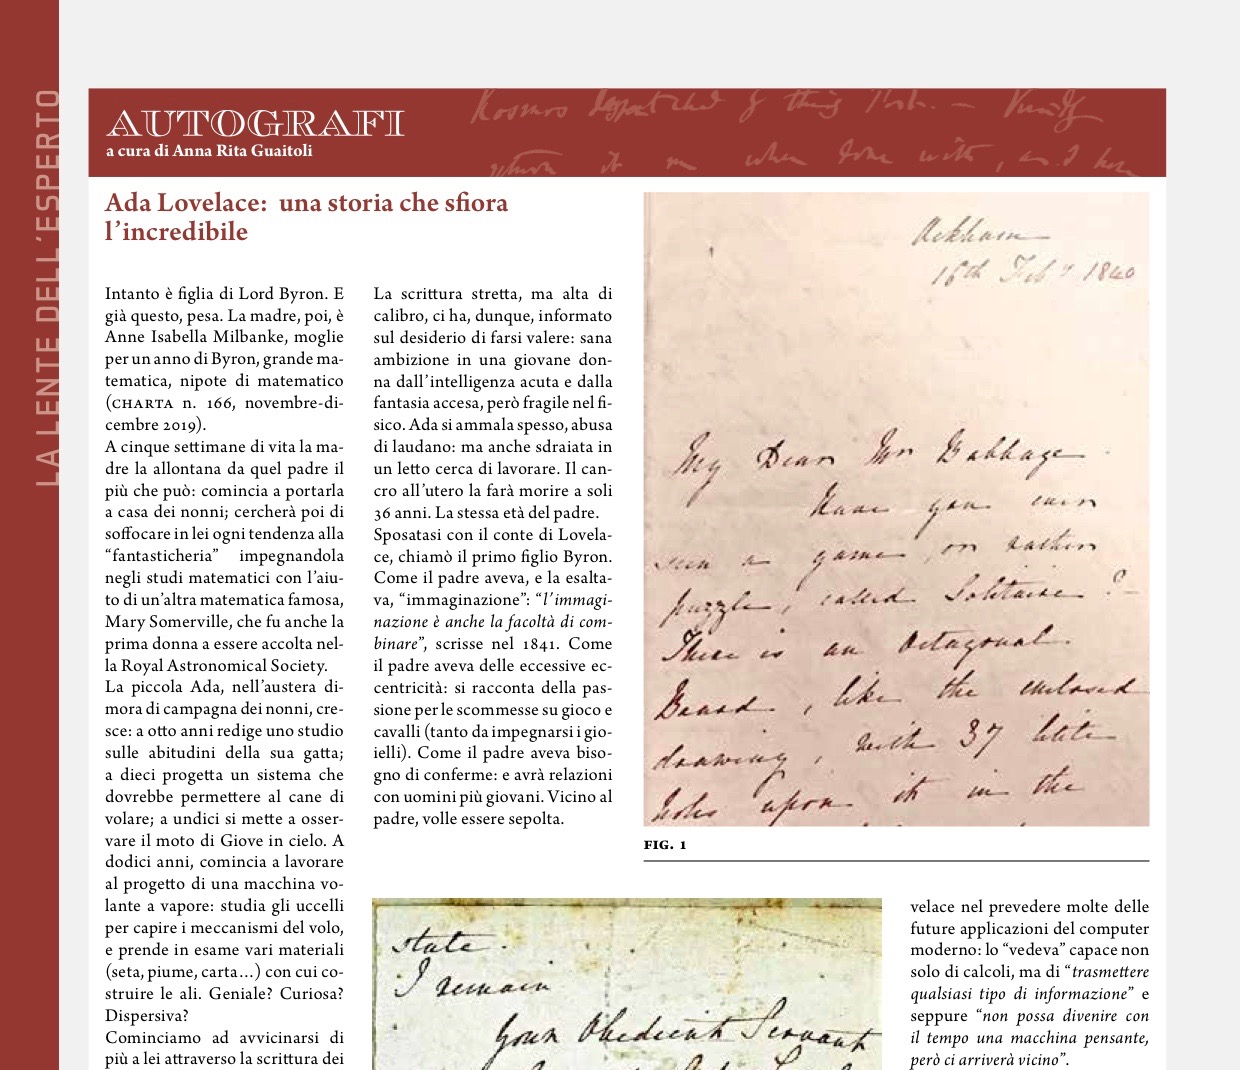 LA LENTE DELL'ESPERTO
AUTOGRAFI
a cura di Anna Rita Guaitoli
Ada Lovelace: una storia che sfiora
l'incredibile
Intanto è figlia di Lord Byron. E
già questo, pesa. La madre, poi, è
Anne Isabella Milbanke, moglie
per un anno di Byron, grande ma-
tematica, nipote di matematico
(CHARTA n. 166, novembre-di-
cembre 2019).
A cinque settimane di vita la ma-
dre la allontana da quel padre il
più che può: comincia a portarla
a casa dei nonni; cercherà poi di
soffocare in lei ogni tendenza alla
“fantasticheria” impegnandola
negli studi matematici con l'aiu-
to di un'altra matematica famosa,
Mary Somerville, che fu anche la
prima donna a essere accolta nel-
la Royal Astronomical Society.
La piccola Ada, nell'austera di-
mora di campagna dei nonni, cre-
sce: a otto anni redige uno studio
sulle abitudini della sua gatta;
a dieci progetta un sistema che
dovrebbe permettere al cane di
volare; a undici si mette a osser-
vare il moto di Giove in cielo. A
dodici anni, comincia a lavorare
al progetto di una macchina vo-
lante a vapore: studia gli uccelli
per capire i meccanismi del volo,
e prende in esame vari materiali
(seta, piume, carta…) con cui co-
struire le ali. Geniale? Curiosa?
Dispersiva?
Cominciamo ad avvicinarsi di
più a lei attraverso la scrittura dei
La scrittura stretta, ma alta di
calibro, ci ha, dunque, informato
sul desiderio di farsi valere: sana
ambizione in una giovane don-
na dall'intelligenza acuta e dalla
fantasia accesa, però fragile nel fi-
sico. Ada si ammala spesso, abusa
di laudano: ma anche sdraiata in
un letto cerca di lavorare. Il can-
cro all'utero la farà morire a soli
36 anni. La stessa età del padre.
Sposatasi con il conte di Lovela-
ce, chiamò il primo figlio Byron.
Come il padre aveva, e la esalta-
va, “immaginazione”: “l'immagi-
nazione è anche la facoltà di com-
binare”, scrisse nel 1841. Come
il padre aveva delle eccessive ec-
centricità: si racconta della pas-
sione per le scommesse su gioco e
cavalli (tanto da impegnarsi i gio-
ielli). Come il padre aveva biso-
gno di conferme: e avrà relazioni
con uomini più giovani. Vicino al
padre, volle essere sepolta.
Ockham
16th Feby 1840
My Dear Mr Babbage
Have you ever
seen a game, or rather
puzzle, called Solitaire?
There is an octagonal
Board, like the enclosed
drawing, with 37 little
holes upon it in the
FIG. 1
state.
I remain
Your Obedient Servant
velace nel prevedere molte delle
future applicazioni del computer
moderno: lo “vedeva” capace non
solo di calcoli, ma di “trasmettere
qualsiasi tipo di informazione” e
seppure “non possa divenire con
il tempo una macchina pensante,
però ci arriverà vicino”.